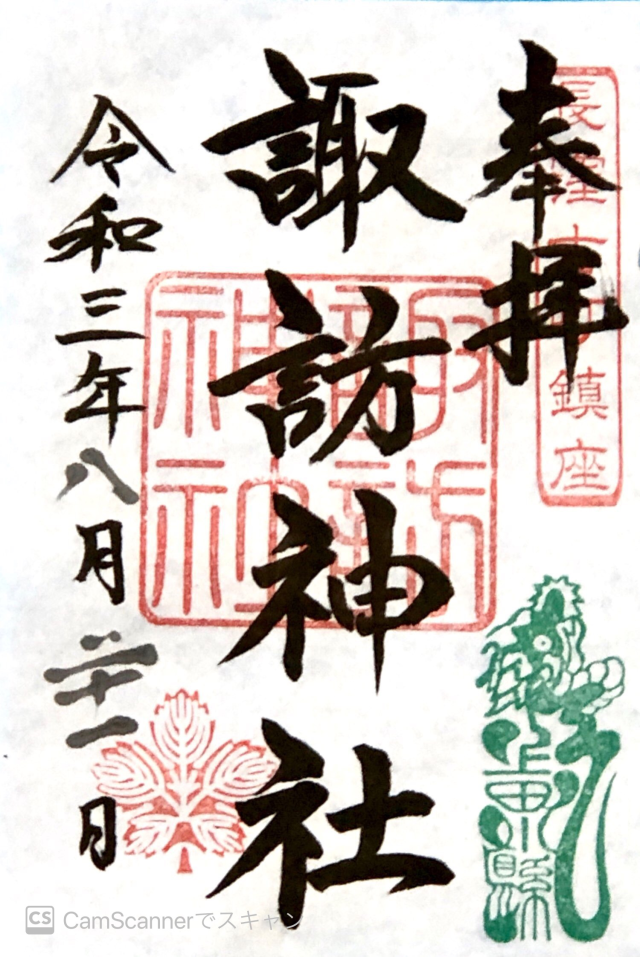 奉拝
長窪古町鎮座
諏訪神社
諏訪
神社
令和三年八月二十一日
CS CamScannerでスキャン